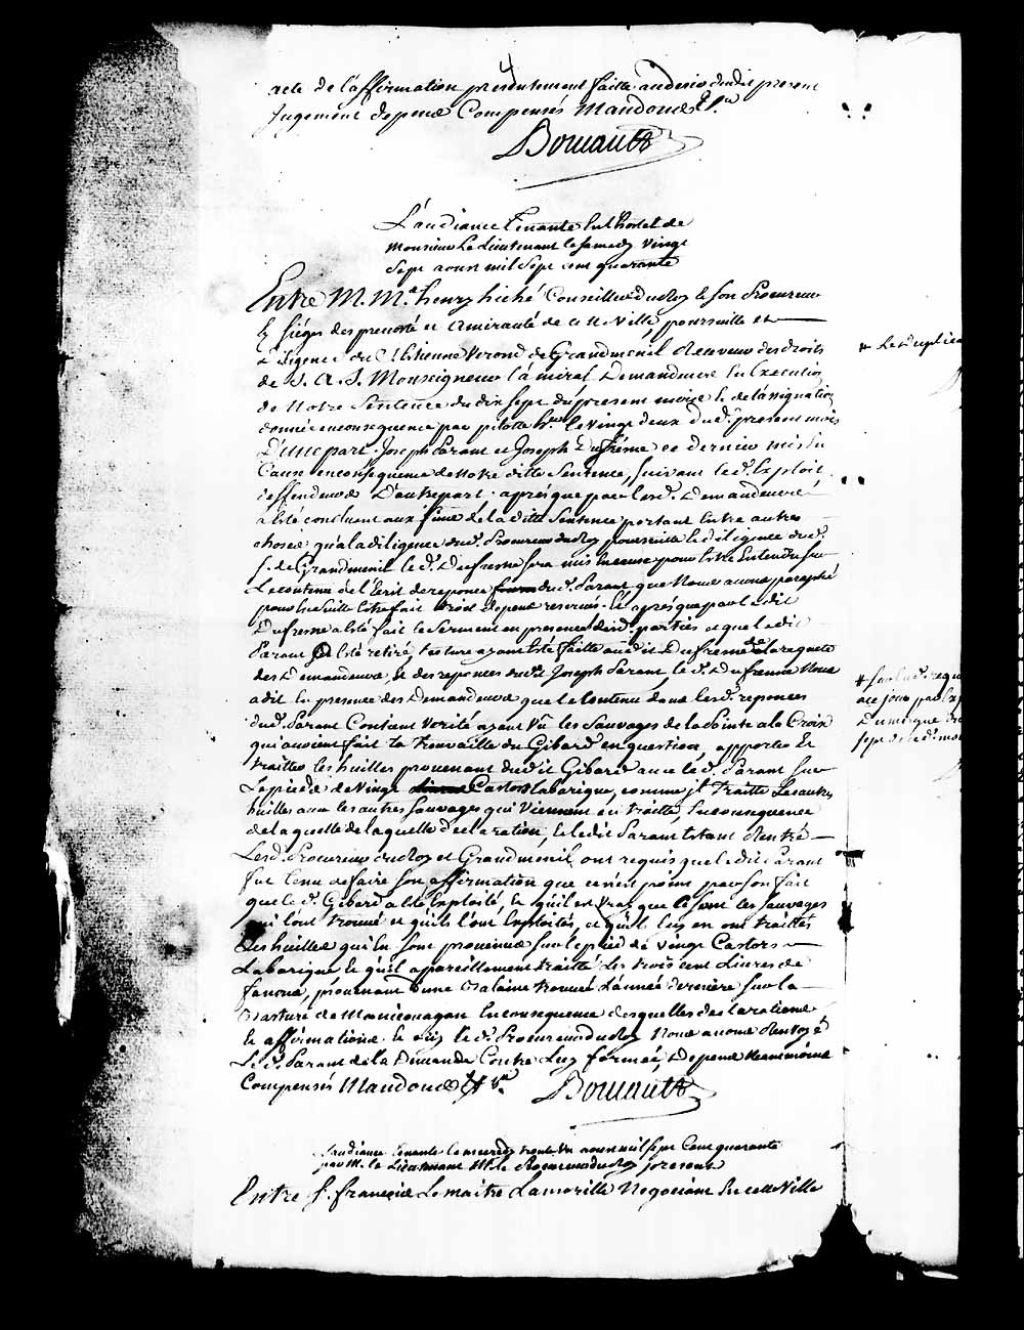 4
acte de l'affirmation presentement faitte au desir dudit present
Jugement depend Compensés Mandons &c.
Boucault
L'audiance Tenante En l'hostel de
Monsieur Le Lieutenant le samedy vingt
Sept aoust mil sept cent quarante
Entre M. Me. henry hiché Conseiller du Roy & son Procureur
Es sièges des prevosté et amirauté de cette Ville, poursuitte et
diligence de Estienne Verond de Grandmenil Receveur des droits
de S. A. S. Monseigneur l'amiral Demandeurs En Execution
de Notre Sentence du dix sept du present mois & de l'assignation
donnée en consequence par pilotte hr. le vingt deux dud. present mois
D'une part, Joseph Parant et Joseph Dufresne ce dernier mis En
Cause en consequence de Notre ditte Sentence, suivant led. Exploit
deffendeurs D'autre part; après que par lesd. Demandeurs
a Eté conclu aux fins de la ditte Sentence portant Entre autres
choses qu'a la diligence dud. Procureur du Roy poursuitte & diligence dud.
S. de Grandmenil le d. Dufresne sera mis En cause pour Estre Entendu sur
Le contenu de l'Ecrit de reponses dud. Parant que Nous avons paraphé
pour Ensuite Estre fait droit depens reservés. Et après que par le dit
Dufresne a Eté fait le Serment en presence desd. parties et que le dit
Parant Eté retiré, Lecture ayant Eté faitte audit Dufresne de la requete
des Demandeurs, et des reponses dudit Joseph Parant le d. Dufresne Nous
a dit En presence des Demandeurs que le Contenu dans lesd. reponses
dud. Parant Contient Verité ayant Vû les Sauvages de la Pointe a la Croix
qui avoient fait la trouvaille du Gibard en question, apporter Et
traitter les huilles provenant dudit Gibard avec le d. Parant sur
Le pied de Vingt Castors la barique, comme Il traitte Les autres
huilles avec les autres Sauvages qui Viennent En traitte, En consequence
de laquelle de laquelle declaration, & le dit Parant Estant Rentré
Lesd. Procureur du Roy et Grandmenil ont requis que le dit Parant
fut tenu de faire son affirmation que ce n'est point par son fait
que le d. Gibard a Eté Exploité, & qu'il est vray que ce sont les sauvages
qui l'ont trouvé et qu'ils l'ont Exploités, et qu'ils luy en ont traittés
Les huilles qui En sont provenus sur le pied de vingt Castors
La barique & qu'il a pareillement traitté les trois cent Livres de
fanons, provenant d'une Balaine trouvée l'année derniere sur la
Batture de Manicouagan En consequence desquelles declarations
& affirmations & ouy le d. Procureur du Roy Nous avons Renvoyé
Le d. Parant de la Demande Contre Luy formée, Depens neanmoins
Compensés Mandons &c.
Boucault
L'audiance Tenante le mercredy trente Un aoust mil sept Cent quarante
par M. le Lieutenant M. le Procureur du Roy present
Entre S. françois Lemaitre Lamorille Negociant En cette Ville